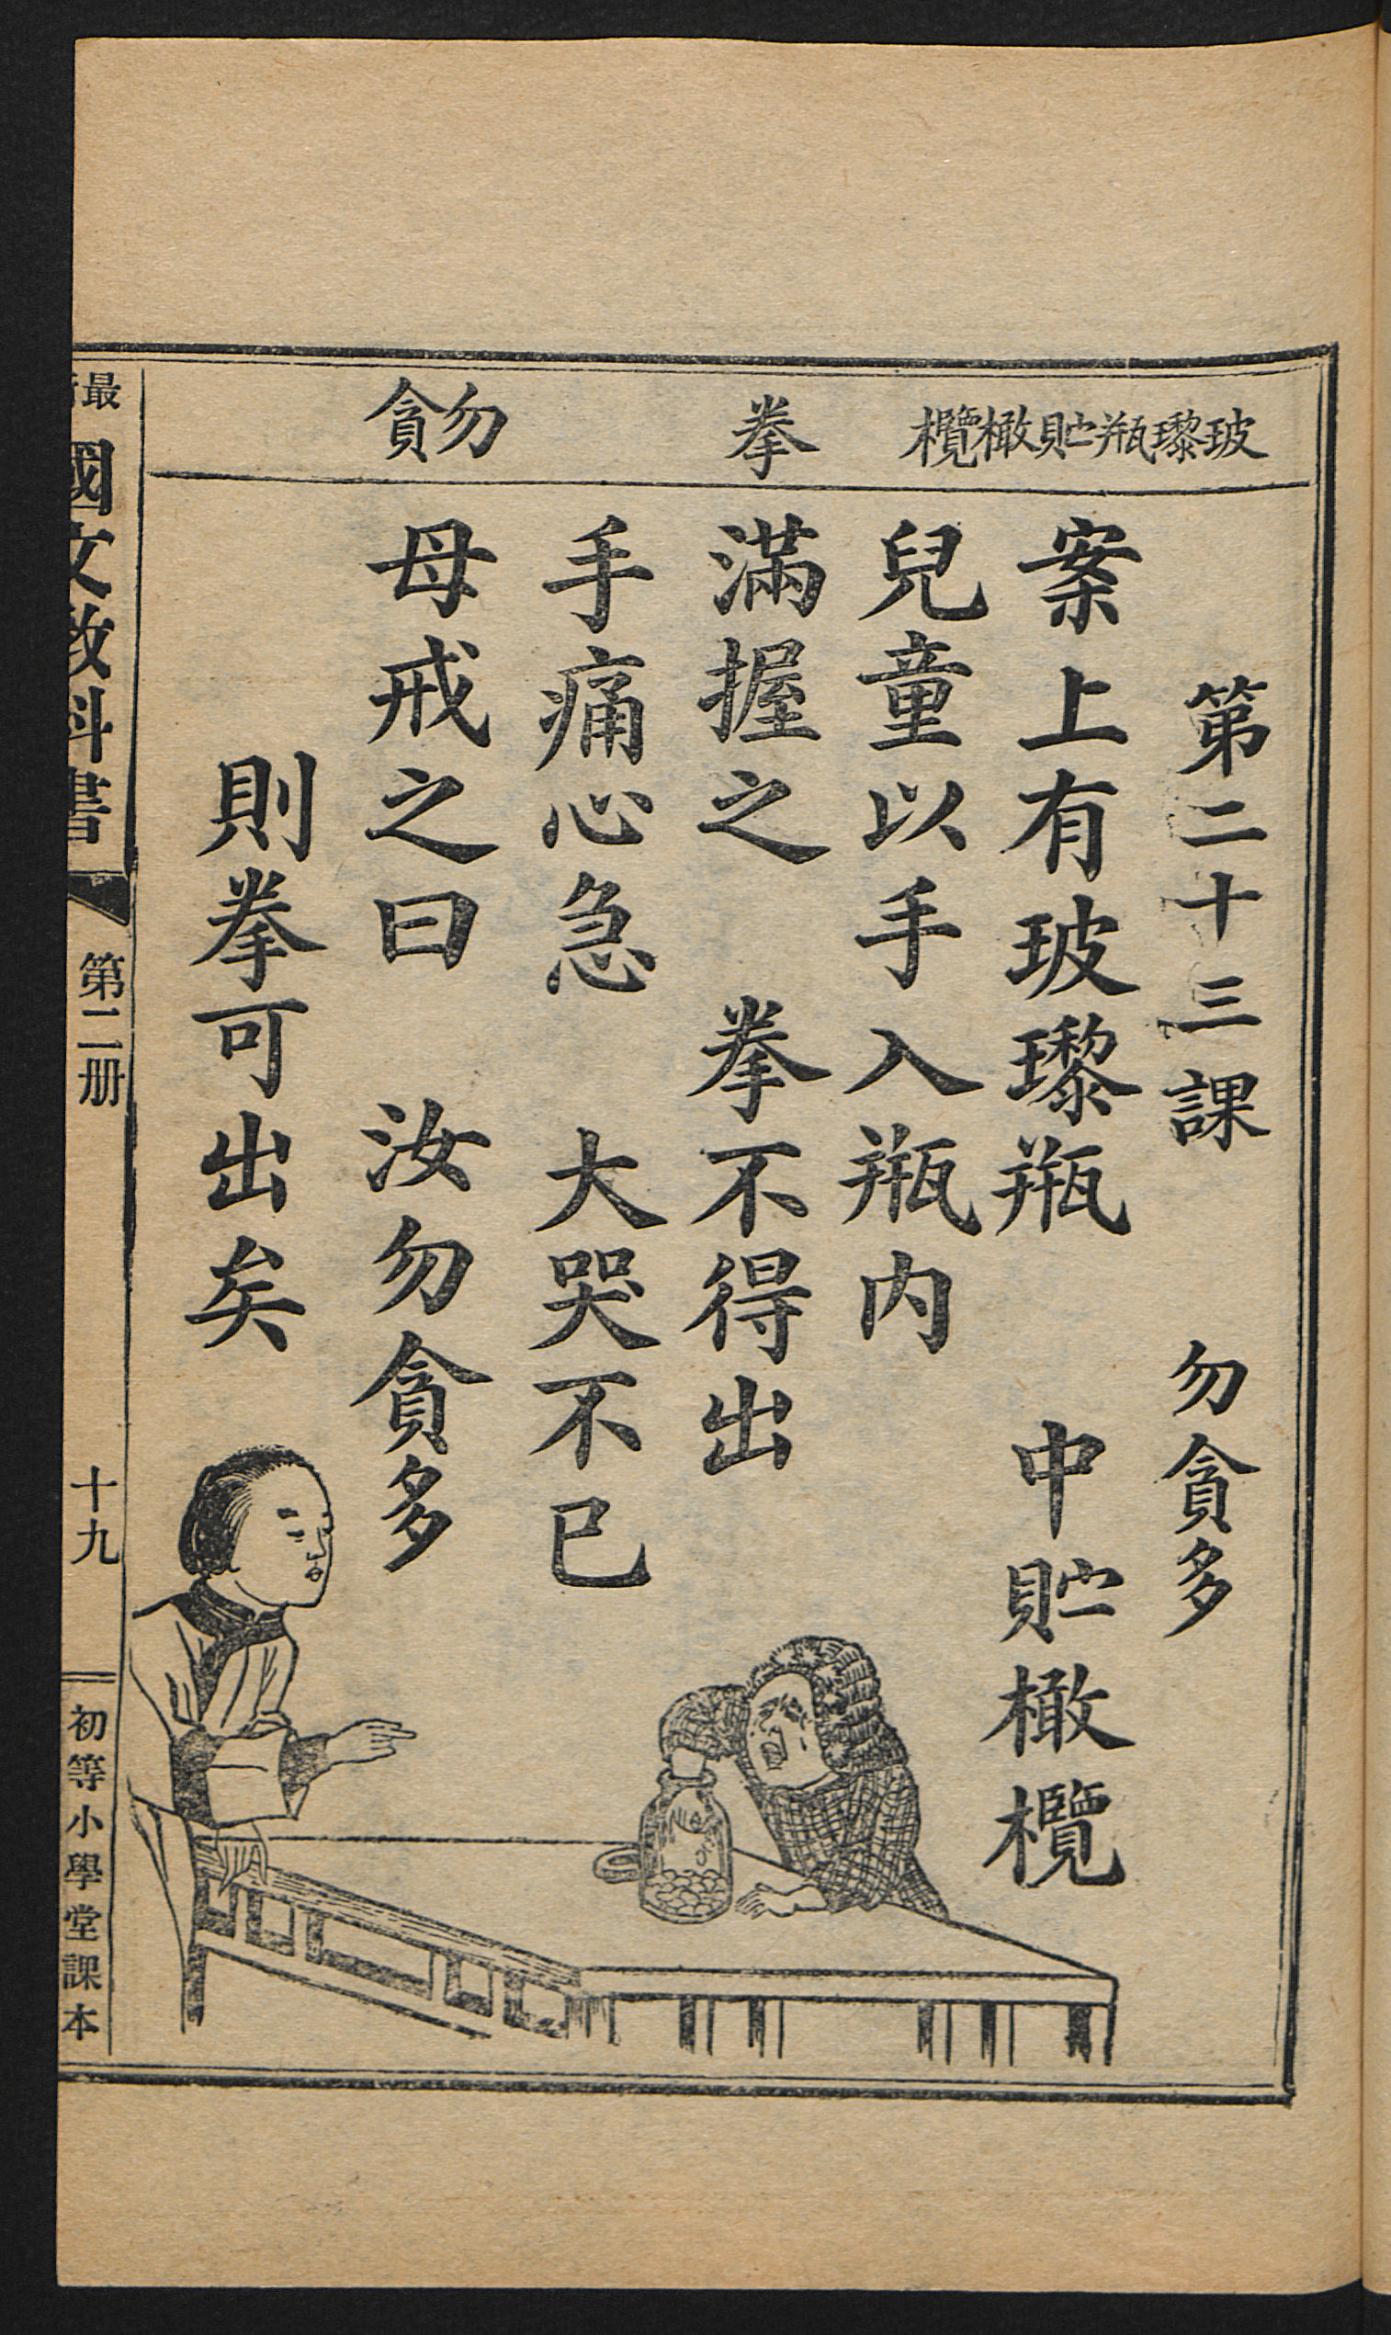 玻瓈瓶貯橄欖
拳
勿貪
第二十三課　勿貪多
案上有玻瓈瓶　中貯橄欖
兒童以手入瓶內
滿握之　拳不得出
手痛心急　大哭不已
母戒之曰　汝勿貪多
則拳可出矣
最
國文教科書　第二册　十九　初等小學堂課本